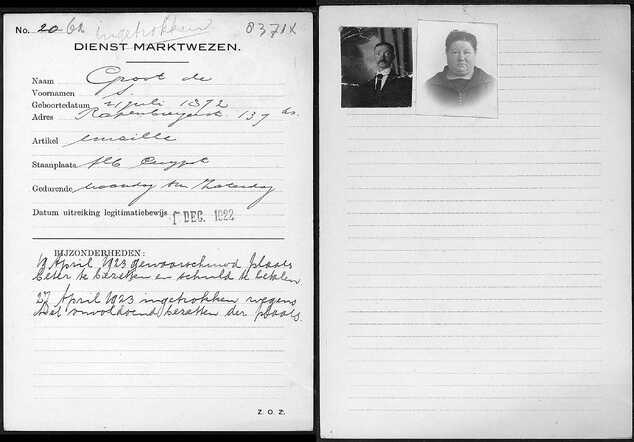 No. 20 62 ingetrokken 8371x
DIENST MARKTWEZEN.
Naam Groot de
Voornamen S.
Geboortedatum 21 juli 1872
Adres Rapenburgerst. 139 hs.
Artikel emaille
Staanplaats Alb Cuypst
Gedurende maandag t/m Zaterdag
Datum uitreiking legitimatiebewijs 1 DEC. 1922
BIJZONDERHEDEN:
April 1923 gewaarschuwd plaats
beter te bezetten en schuld te betalen
27 April 1923 ingetrokken wegens
het onvoldoend bezetten der plaats.
Z. O. Z.